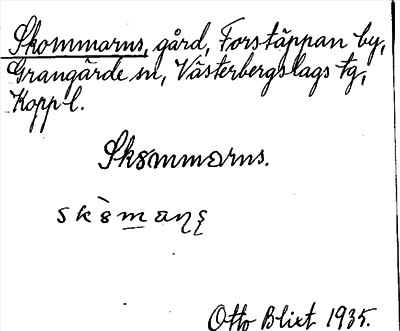 Skommarns, gård, Forstäppan by,
Grangärde sn, Västerbergslags tg,
Kopp l.
Skommarns.
Otto Blixt 1935.